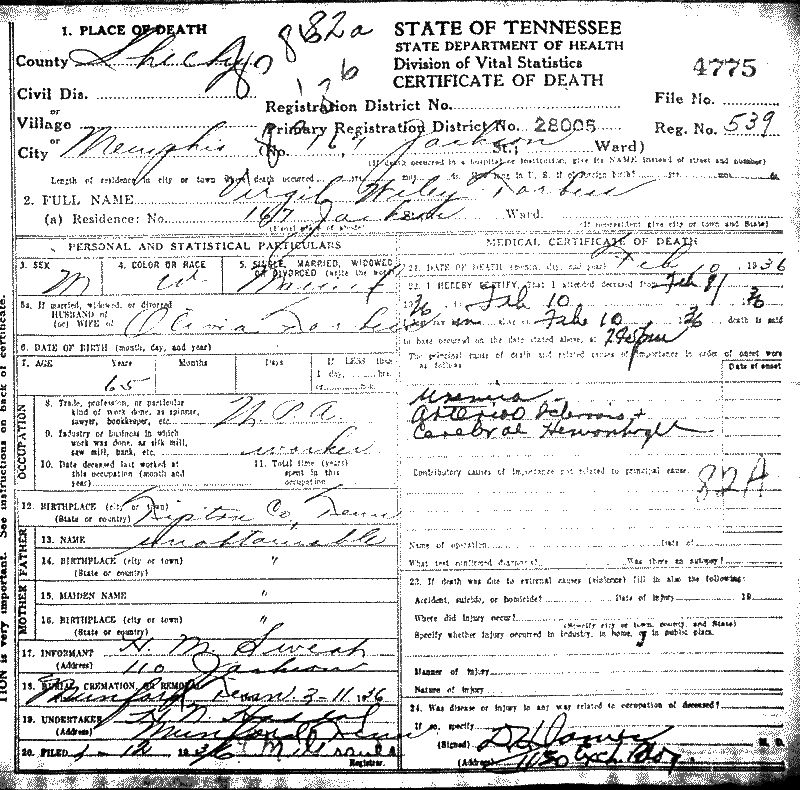 1. PLACE OF DEATH
82a
STATE OF TENNESSEE
STATE DEPARTMENT OF HEALTH
Division of Vital Statistics
CERTIFICATE OF DEATH
4775
County Shelby
Civil Dis.
or
Village
or
City Memphis
Registration District No.
Primary Registration District No. 28005
File No.
Reg. No. 539
(No. 167 Jackson St.; Ward)
(If death occurred in a hospital or institution, give its NAME instead of street and number)
Length of residence in city or town where death occurred yrs. mos. ds. How long in U. S. if of foreign birth? yrs. mos. ds.
2. FULL NAME Virgil Wiley
(a) Residence: No. 167 Jackson Ward.
(Usual place of abode) (If nonresident give city or town and State)
PERSONAL AND STATISTICAL PARTICULARS
3. SEX M
4. COLOR OR RACE W
5. SINGLE, MARRIED, WIDOWED OR DIVORCED (write the word)
5a. If married, widowed, or divorced
HUSBAND of
(or) WIFE of
6. DATE OF BIRTH (month, day, and year)
7. AGE Years Months Days If LESS than
65
1 day, hrs.
or min.
OCCUPATION
8. Trade, profession, or particular
kind of work done, as spinner,
sawyer, bookkeeper, etc. W P A
9. Industry or business in which
work was done, as silk mill,
saw mill, bank, etc. worker
10. Date deceased last worked at
this occupation (month and
year)
11. Total time (years)
spent in this
occupation
12. BIRTHPLACE (city or town)
(State or country) Tipton Co, Tenn
FATHER
13. NAME unobtainable
14. BIRTHPLACE (city or town) "
(State or country)
MOTHER
15. MAIDEN NAME "
16. BIRTHPLACE (city or town) "
(State or country)
17. INFORMANT H. M.
(Address) 110 Jackson
18. BURIAL, CREMATION, OR REMOVAL
Munford, Tenn 2-11 1936
19. UNDERTAKER
(Address) Munford Tenn
20. FILED 1936
Registrar.
MEDICAL CERTIFICATE OF DEATH
21. DATE OF DEATH (month, day, and year) Feb 10 1936
22. I HEREBY CERTIFY, That I attended deceased from Feb 9
1936 to Feb 10 1936
I last saw him alive on Feb 10 1936 death is said
to have occurred on the date stated above, at
The principal cause of death and related causes of importance in order of onset were
as follows:
Date of onset
Uremia
Arterio Sclerosis +
Cerebral Hemorrhage
Contributory causes of importance not related to principal cause:
82A
Name of operation Date of
What test confirmed diagnosis? Was there an autopsy?
23. If death was due to external causes (violence) fill in also the following:
Accident, suicide, or homicide? Date of injury 19
Where did injury occur?
(Specify city or town, county, and State)
Specify whether injury occurred in industry, in home, or in public place.
Manner of injury
Nature of injury
24. Was disease or injury in any way related to occupation of deceased?
If so, specify
(Signed) M. D.
(Address) Exch Bldg.
TION is very important. See instructions on back of certificate.